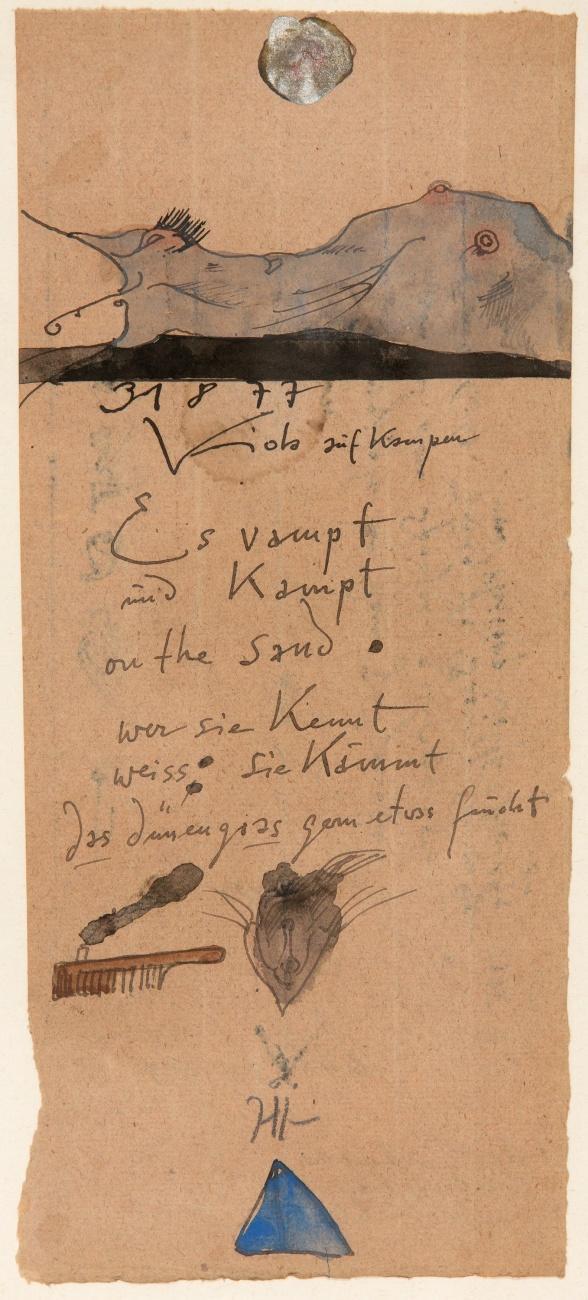 31 8 77
Viola auf Kampen
Es vampt
und Kampt
on the Sand.
wer sie Kennt
weiss: sie Kämmt
das dünengras gern etwas feucht